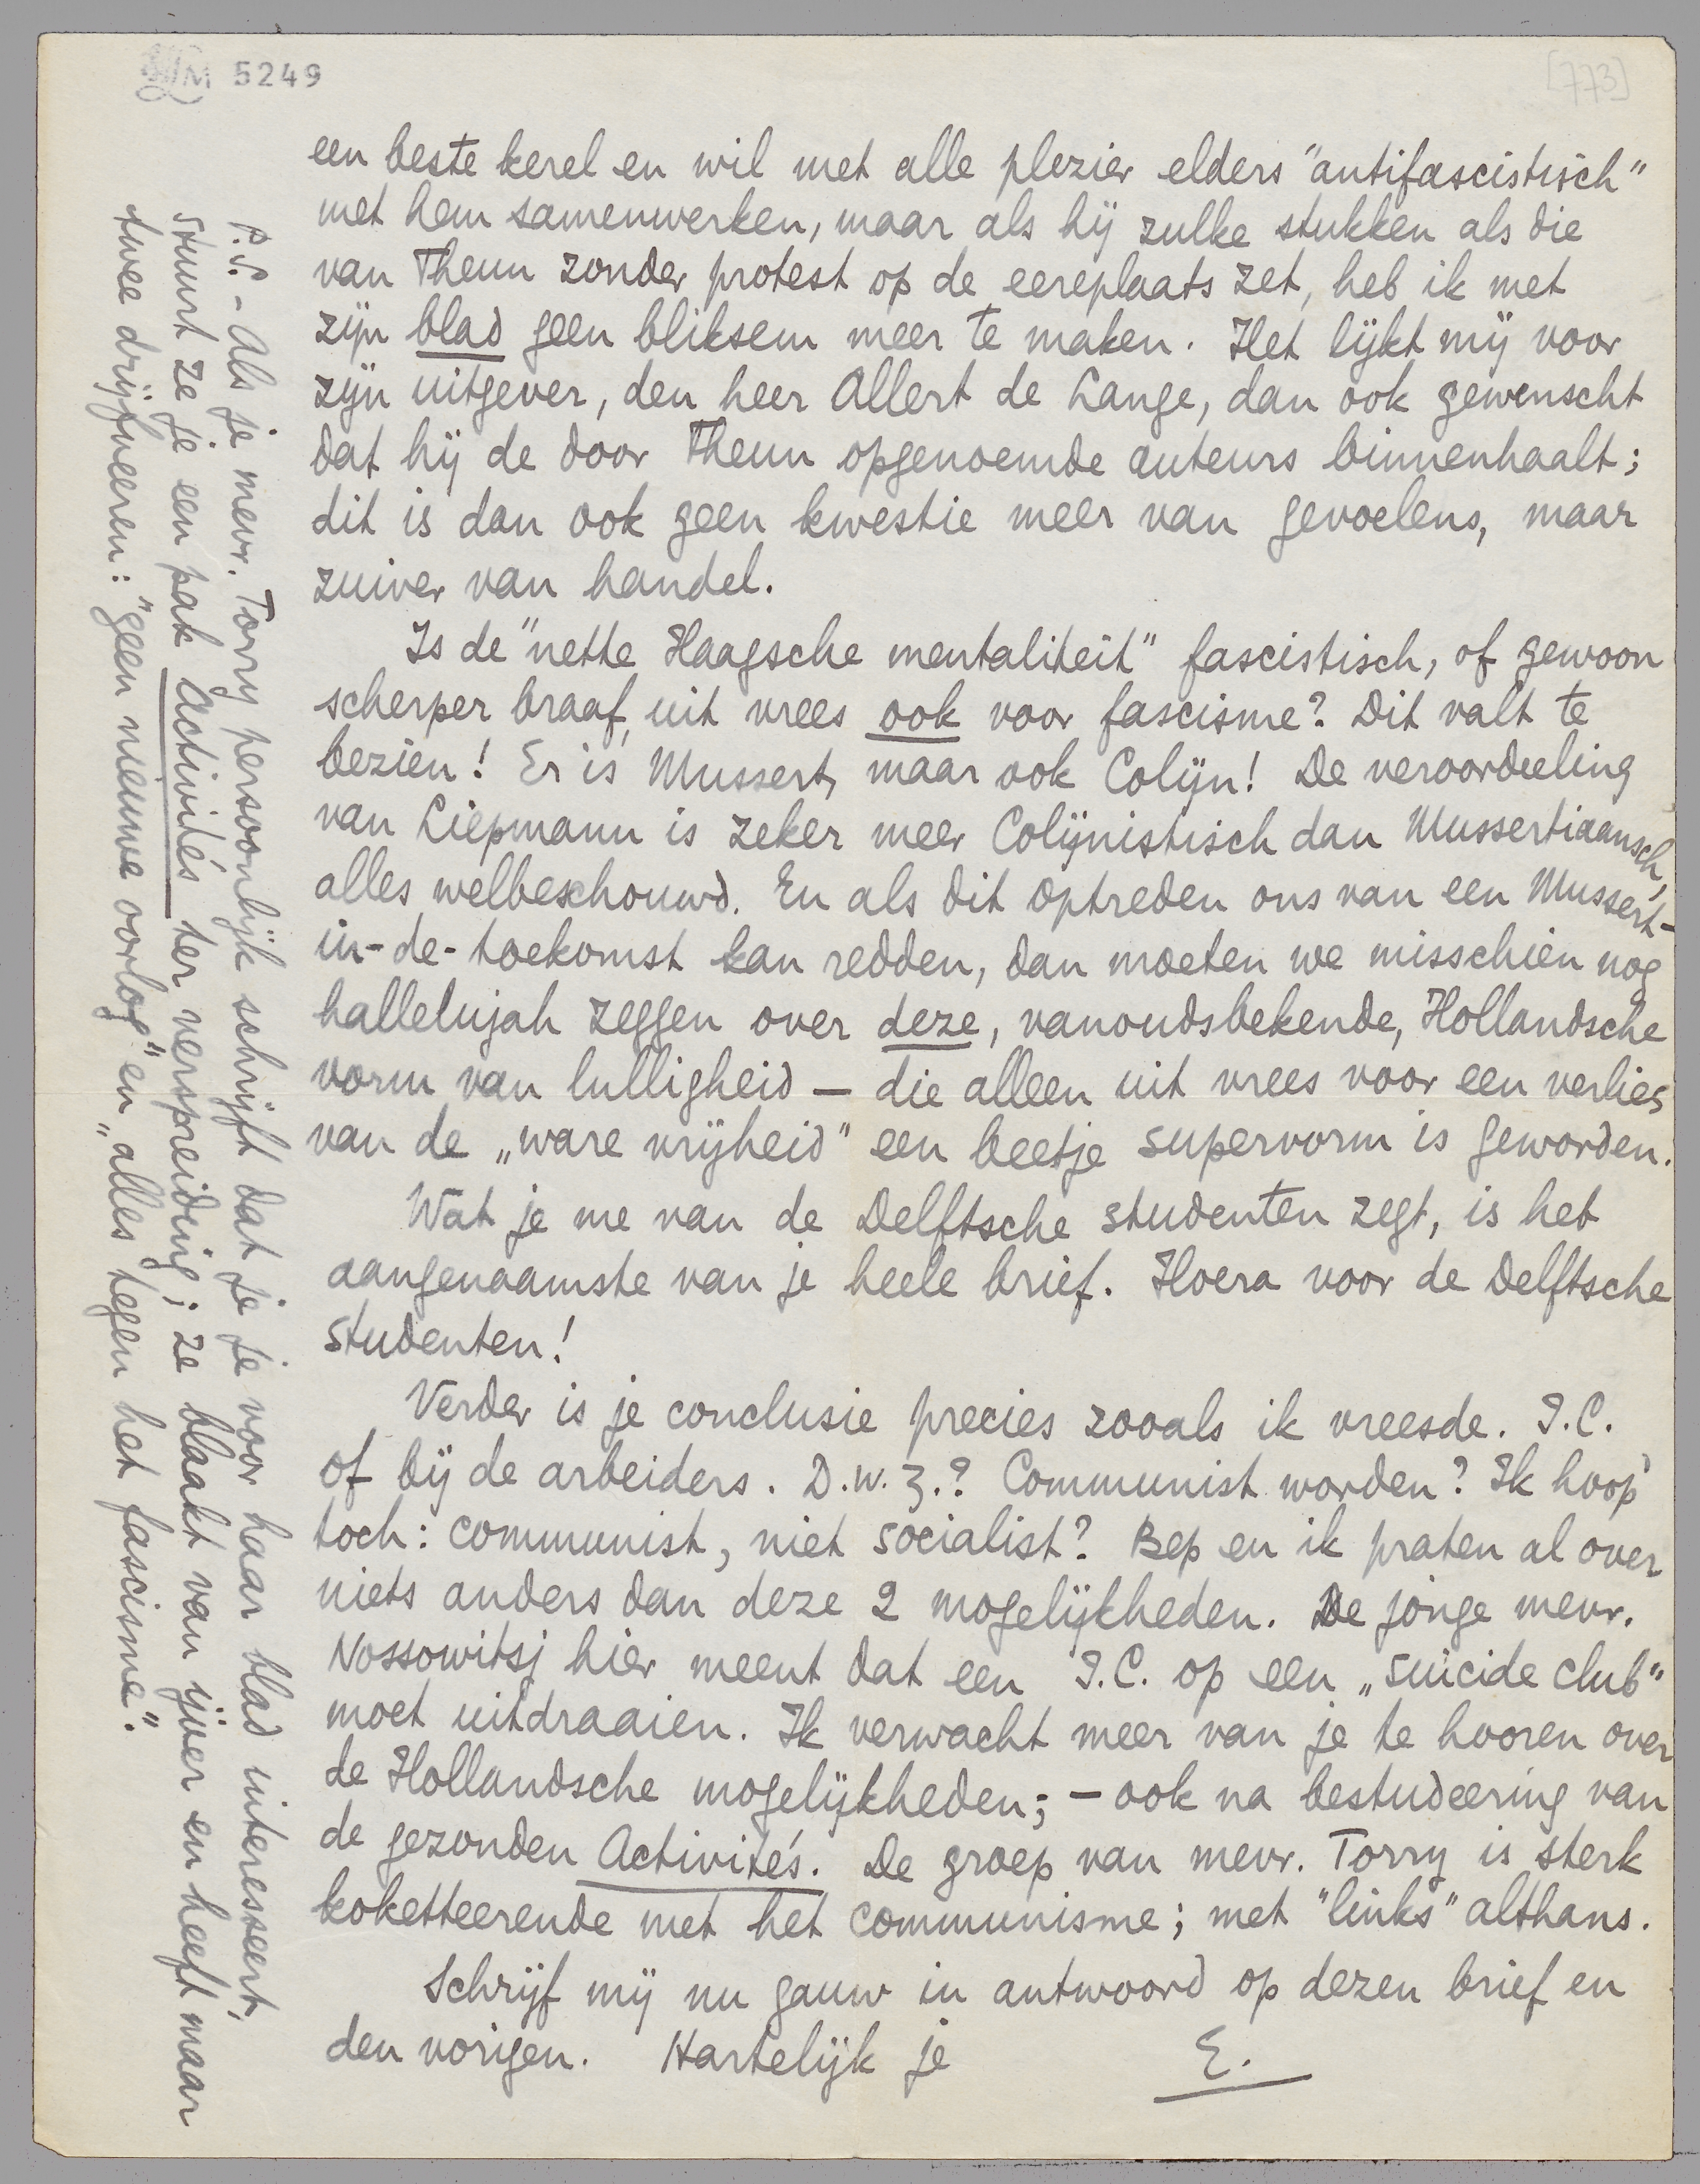 LM 5249
[773]
een beste kerel en wil met alle plezier elders "antifascistisch"
met hem samenwerken, maar als hij zulke stukken als die
van Theun zonder protest op de eereplaats zet, heb ik met
zijn blad geen bliksem meer te maken. Het lijkt mij voor
zijn uitgever, den heer Allert de Lange, dan ook gewenscht
dat hij de door Theun opgenoemde auteurs binnenhaalt;
dit is dan ook geen kwestie meer van gevoelens, maar
zuiver van handel.
Is de "nette Haagsche mentaliteit" fascistisch, of gewoon
scherper braaf, uit vrees ook voor fascisme? Dit valt te
bezien! Er is Mussert, maar ook Colijn! De veroordeeling
van Liepmann is zeker meer Colijnistisch dan Mussertiaansch,
alles welbeschouwd. En als dit optreden ons van een Mussert-
in-de-toekomst kan redden, dan moeten we misschien nog
hallelujah zeggen over deze, vanoudsbekende, Hollandsche
vorm van lulligheid — die alleen uit vrees voor een verlies
van de „ware vrijheid" een beetje supervorm is geworden.
Wat je me van de Delftsche studenten zegt, is het
aangenaamste van je heele brief. Hoera voor de Delftsche
studenten!
Verder is je conclusie precies zooals ik vreesde. I.C.
of bij de arbeiders. D.w.z.? Communist worden? Ik hoop
toch: communist, niet socialist? Bep en ik praten al over
niets anders dan deze 2 mogelijkheden. De jonge mevr.
Nossowitsj hier meent dat een I.C. op een „suicide club"
moet uitdraaien. Ik verwacht meer van je te hooren over
de Hollandsche mogelijkheden; – ook na bestudeering van
de gezonden Activités. De groep van mevr. Torry is sterk
koketteerende met het communisme; met "links" althans.
Schrijf mij nu gauw in antwoord op dezen brief en
den vorigen. Hartelijk je E.
P.S. – Als je mevr. Torry persoonlijk schrijft dat je je voor haar blad interesseert,
stuurt ze je een pak Activités ter verspreiding; ze blaakt van ijver en heeft maar
twee drijfveeren: "geen nieuwe oorlog" en „alles tegen het fascisme".